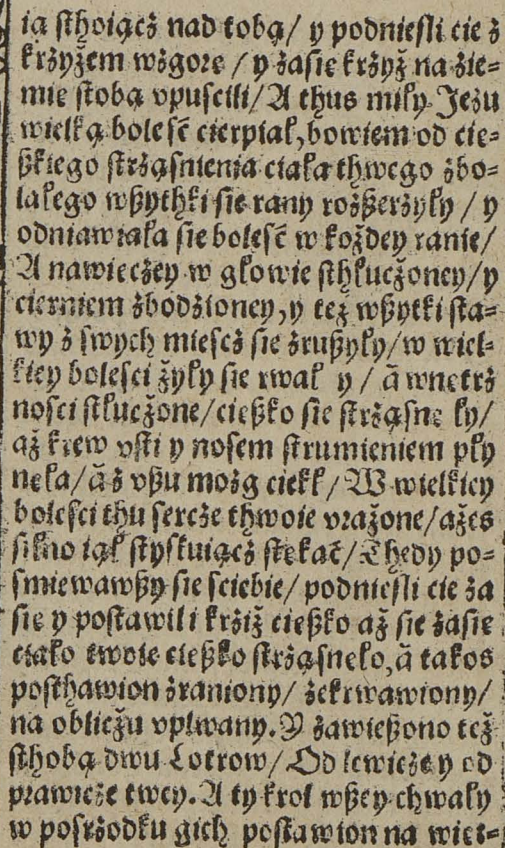 ią sthoiącż nad tobą/ y podniesli cie ż
krżyżem wżgore / y żasię krżyż na żie⸗
mie stobą vpuscili/ A thus miły Jezu
wielką bolesc̄ cierpiał, bowiem od cie⸗
ßkiego strżąsnienia ciała thwego żbo⸗
lałego wßythki sie rany rożßerżyły / y
odniawiała sie bolesc̄ w kożdey ranie/
A nawiecżey w głowie sthłucżoney/ y
cierniem żbodżioney, y też wßytki sta⸗
wy ż swych miescż sie żrußyły/ w wiel⸗
kiey bolesci żyły sie rwał y / ā wnętrż
nosci stłucżone/ cießko sie strżąsnę ły/
aż krew vsti y nosem strumieniem pły
nęła/ ā ż vßu możg ciekł/ W wielkiey
bolesci thu sercże thwoie vrażone/ ażes
silno iął styskuiącż stękac̄/ Thedy po⸗
smiewawßy sie sciebie/ podniesli cie ża
się y postawili krżiż cießko aż sie żasie
ciało twoie cießko strżąsneło, ā takos
posthawion żraniony/ żekrwawiony/
na oblicżu vplwany. Y żawießono też
sthobą dwu Lotrow/ Od lewicże y od
prawicże twey. A ty krol wßey chwały
w posrżodku gich postawion na więt⸗